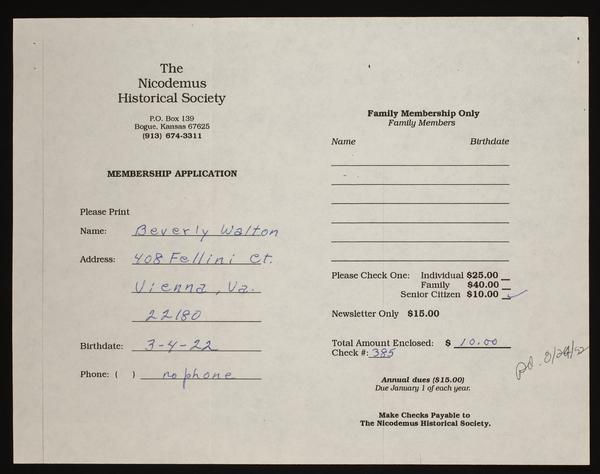 The
Nicodemus
Historical Society
P.O. Box 139
Bogue, Kansas 67625
(913) 674-3311
MEMBERSHIP APPLICATION
Please Print
Name: Beverly Walton
Address: 408 Fellini Ct.
Vienna, Va.
22180
Birthdate: 3-4-22
Phone: ( ) no phone
Family Membership Only
Family Members
Name Birthdate
Please Check One: Individual $25.00
Family $40.00
Senior Citizen $10.00 ✓
Newsletter Only $15.00
Total Amount Enclosed: $ 10.00
Check #: 385
Annual dues ($15.00)
Due January 1 of each year.
Make Checks Payable to
The Nicodemus Historical Society.
pd.